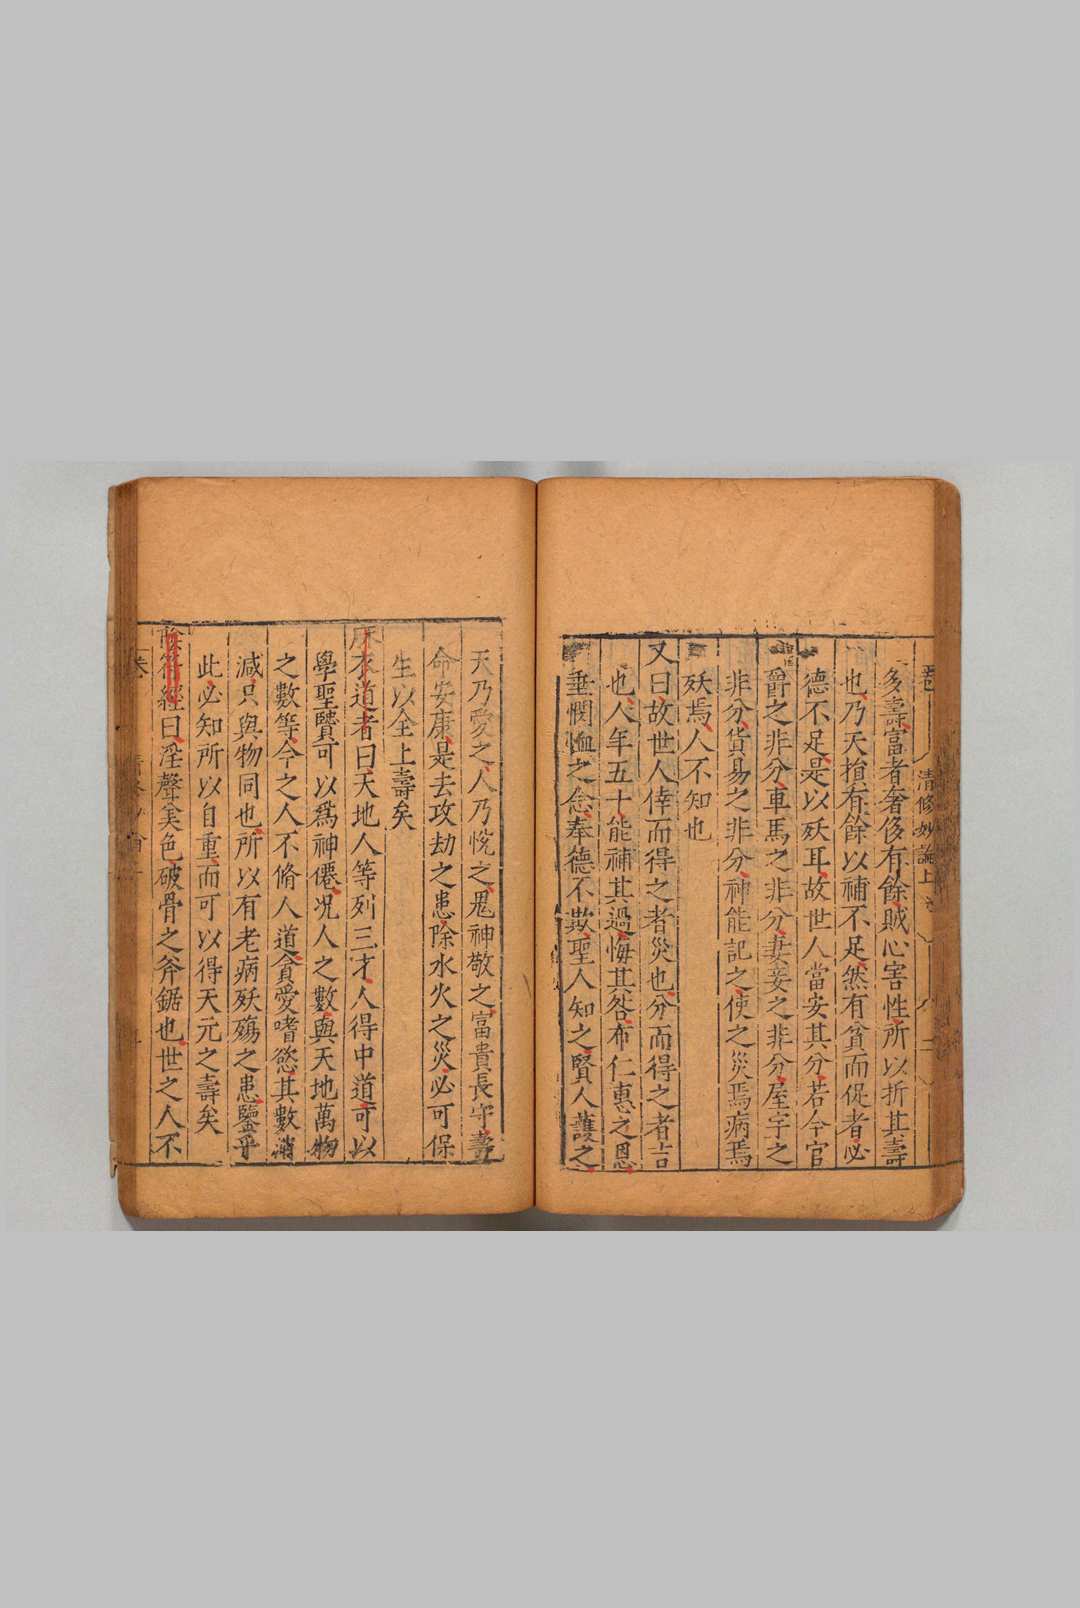 清修妙論上卷
多壽富者奢侈有餘賊心害性所以折其壽
也乃天損有餘以補不足然有貧而促者必
德不足是以殀耳故世人當安其分若今官
爵之非分車馬之非分妻妾之非分屋宇之
非分貨易之非分神能記之使之災焉病焉
殀焉人不知也
又曰故世人倖而得之者災也分而得之者吉
也人年五十能補其過悔其咎布仁惠之恩
垂憫恤之念奉德不欺聖人知之賢人護之
天乃愛之人乃悅之鬼神敬之富貴長守壽
命安康是去攻劫之患除水火之災必可保
生以全上壽矣
麻衣道者曰天地人等列三才人得中道可以
學聖賢可以為神僊況人之數與天地萬物
之數等今之人不脩人道貪愛嗜慾其數消
減只與物同也所以有老病殀殤之患鑒乎
此必知所以自重而可以得天元之壽矣
陰符經曰淫聲美色破骨之斧鋸也世之人不